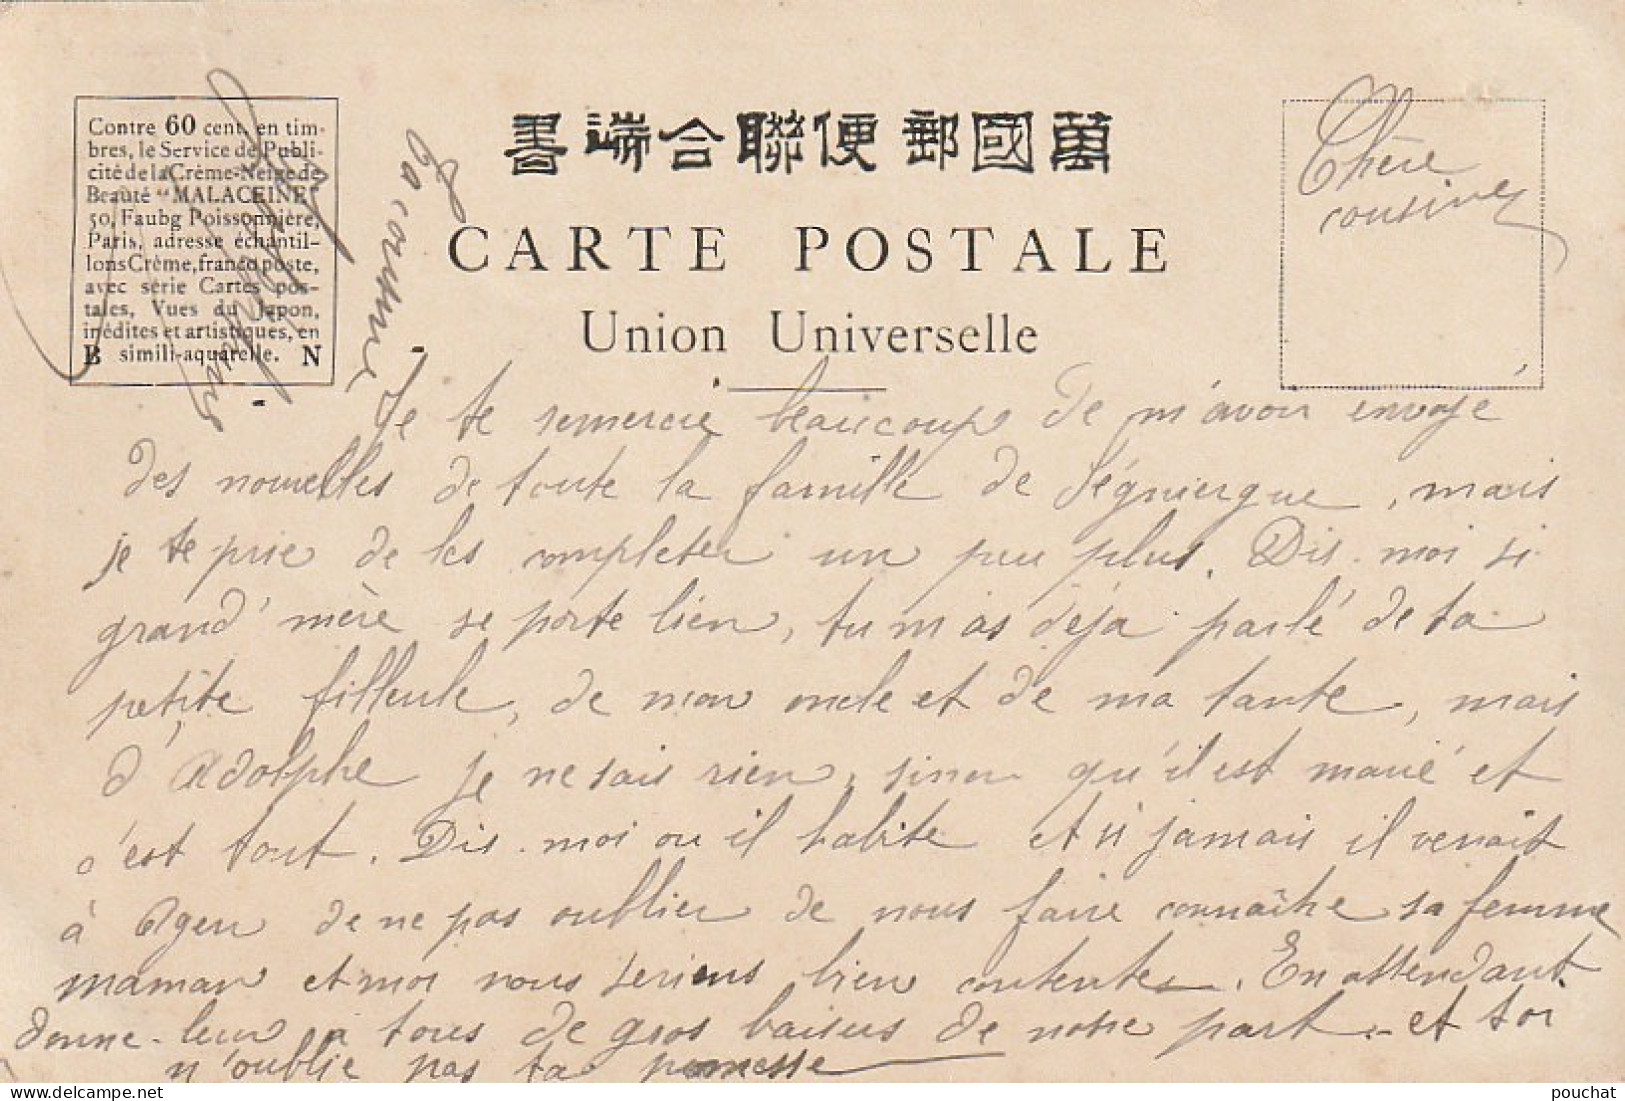 Contre 60 cent. en tim-
bres, le Service de Publi-
cité de la Crème-Neige de
Beauté "MALACEINE"
50, Faubg Poissonnière,
Paris, adresse échantil-
lons Crème, franco poste,
avec série Cartes pos-
tales, Vues du Japon,
inédites et artistiques, en
B simili-aquarelle. N
書端合聯便郵國萬
CARTE POSTALE
Union Universelle
Chère
cousine
Je te remercie beaucoup de m'avoir envoyé
des nouvelles de toute la famille de Ségniergue, mais
je te prie de les completer un peu plus. Dis-moi si
grand'mère se porte bien, tu m'as déja parlé de ta
petite filleule, de mon oncle et de ma tante, mais
d'Adolphe je ne sais rien, sinon qu'il est marié et
c'est tout. Dis-moi ou il habite et si jamais il venait
à Agen de ne pas oublier de nous faire connaître sa femme
maman et moi nous seriens bien contentes. En attendant
donne-leur a tous de gros baisers de notre part. et toi
n'oublie pas ta promesse
Ta cousine
pouchat